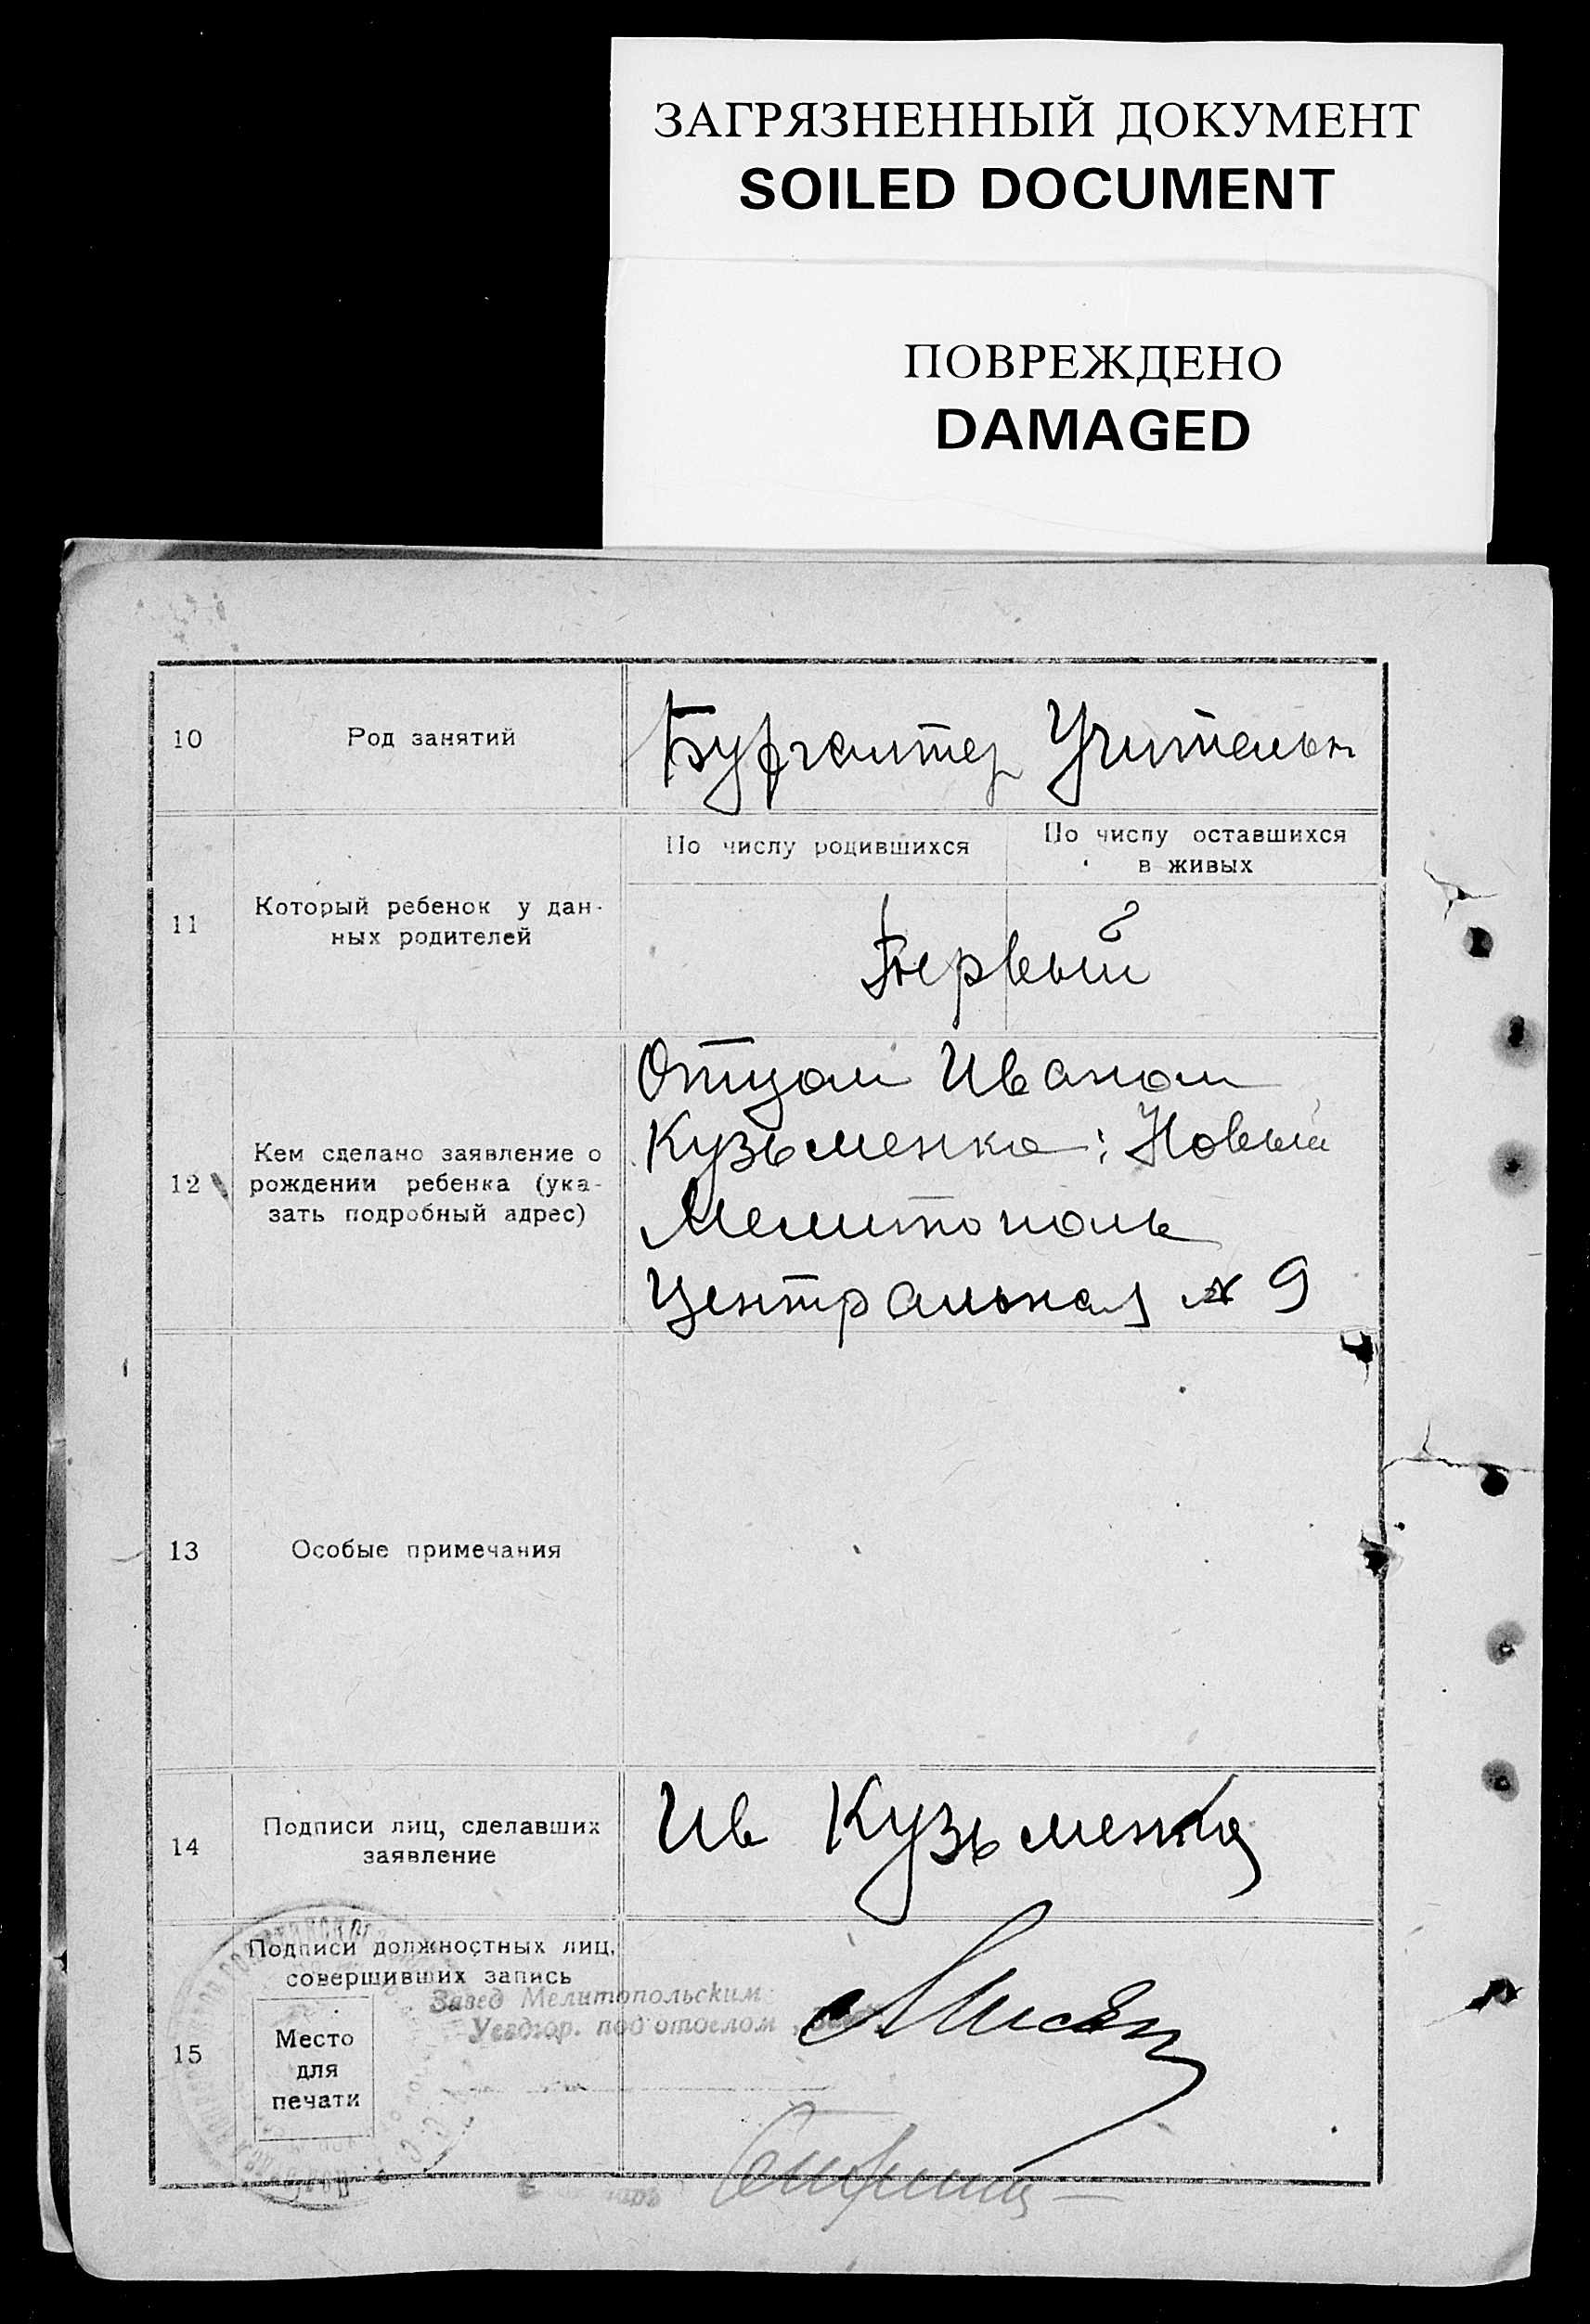 ЗАГРЯЗНЕННЫЙ ДОКУМЕНТ
SOILED DOCUMENT
ПОВРЕЖДЕНО
DAMAGED
10
Род занятий
Бухгалтер Учительн
11
Который ребенок у дан-
ных родителей
По числу родившихся
По числу оставшихся
в живых
Первый
12
Кем сделано заявление о
рождении ребенка (ука-
зать подробный адрес)
Отцом Иваном
Кузьменко: Новый
Мелитополь
Центральная № 9
13
Особые примечания
14
Подписи лиц, сделавших
заявление
Ив Кузьменко
15
Подписи должностных лиц,
совершивших запись
Завед Мелитопольским
под отделом
Место
для
печати